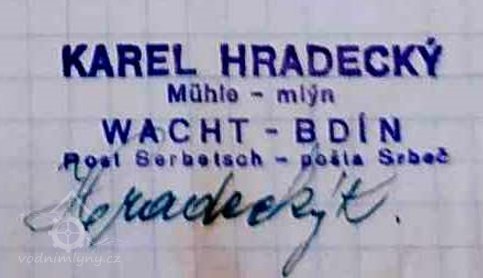 KAREL HRADECKÝ
Mühle - mlýn
WACHT - BDÍN
Post Serbetsch - pošta Srbeč
Hradecký K.
vodnimlyny.cz